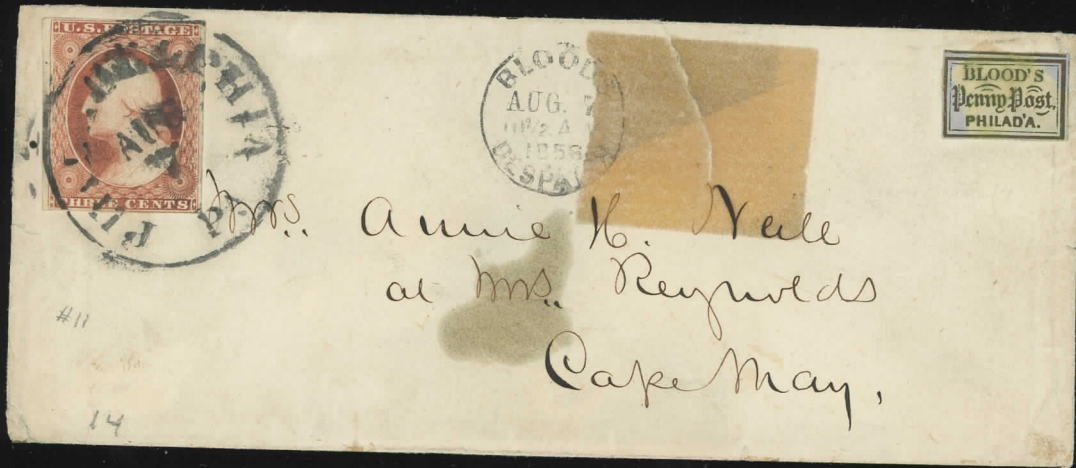 U.S. POSTAGE
THREE CENTS
PHILADELPHIA Pa
AUG
7
BLOOD'S
AUG. 7
10 1/2 A
1856
DESPATCH
BLOOD'S
Penny Post,
PHILAD'A.
Mrs. Annie H. Neill
at Mrs. Reynolds
Cape May,
#11
14